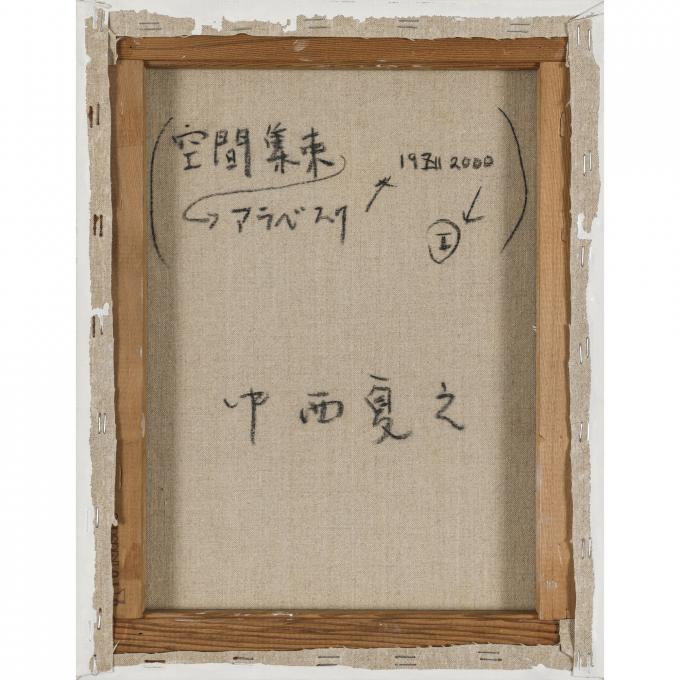 (空間集束 19 2000)
アラベスク Ⅰ
中西夏之